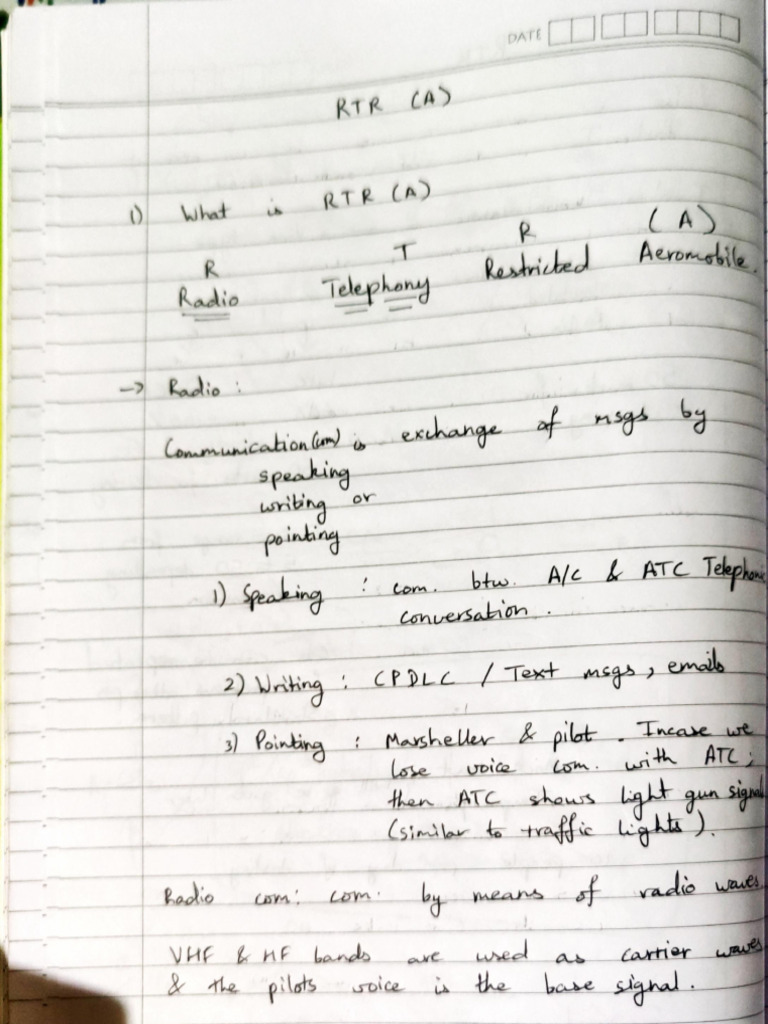 DATE
RTR (A)
1) What is RTR (A)
R T R (A)
Radio Telephony Restricted Aeromobile.
→ Radio :
Communication (com) is exchange of msgs by
speaking
writing or
pointing
1) Speaking : com. btw. A/C & ATC Telephonic
conversation.
2) Writing : CPDLC / Text msgs, emails
3) Pointing : Marsheller & pilot. Incase we
lose voice com. with ATC;
then ATC shows light gun signal
(similar to traffic lights).
Radio com: com. by means of radio waves
VHF & HF bands are used as carrier waves
& the pilots voice is the base signal.